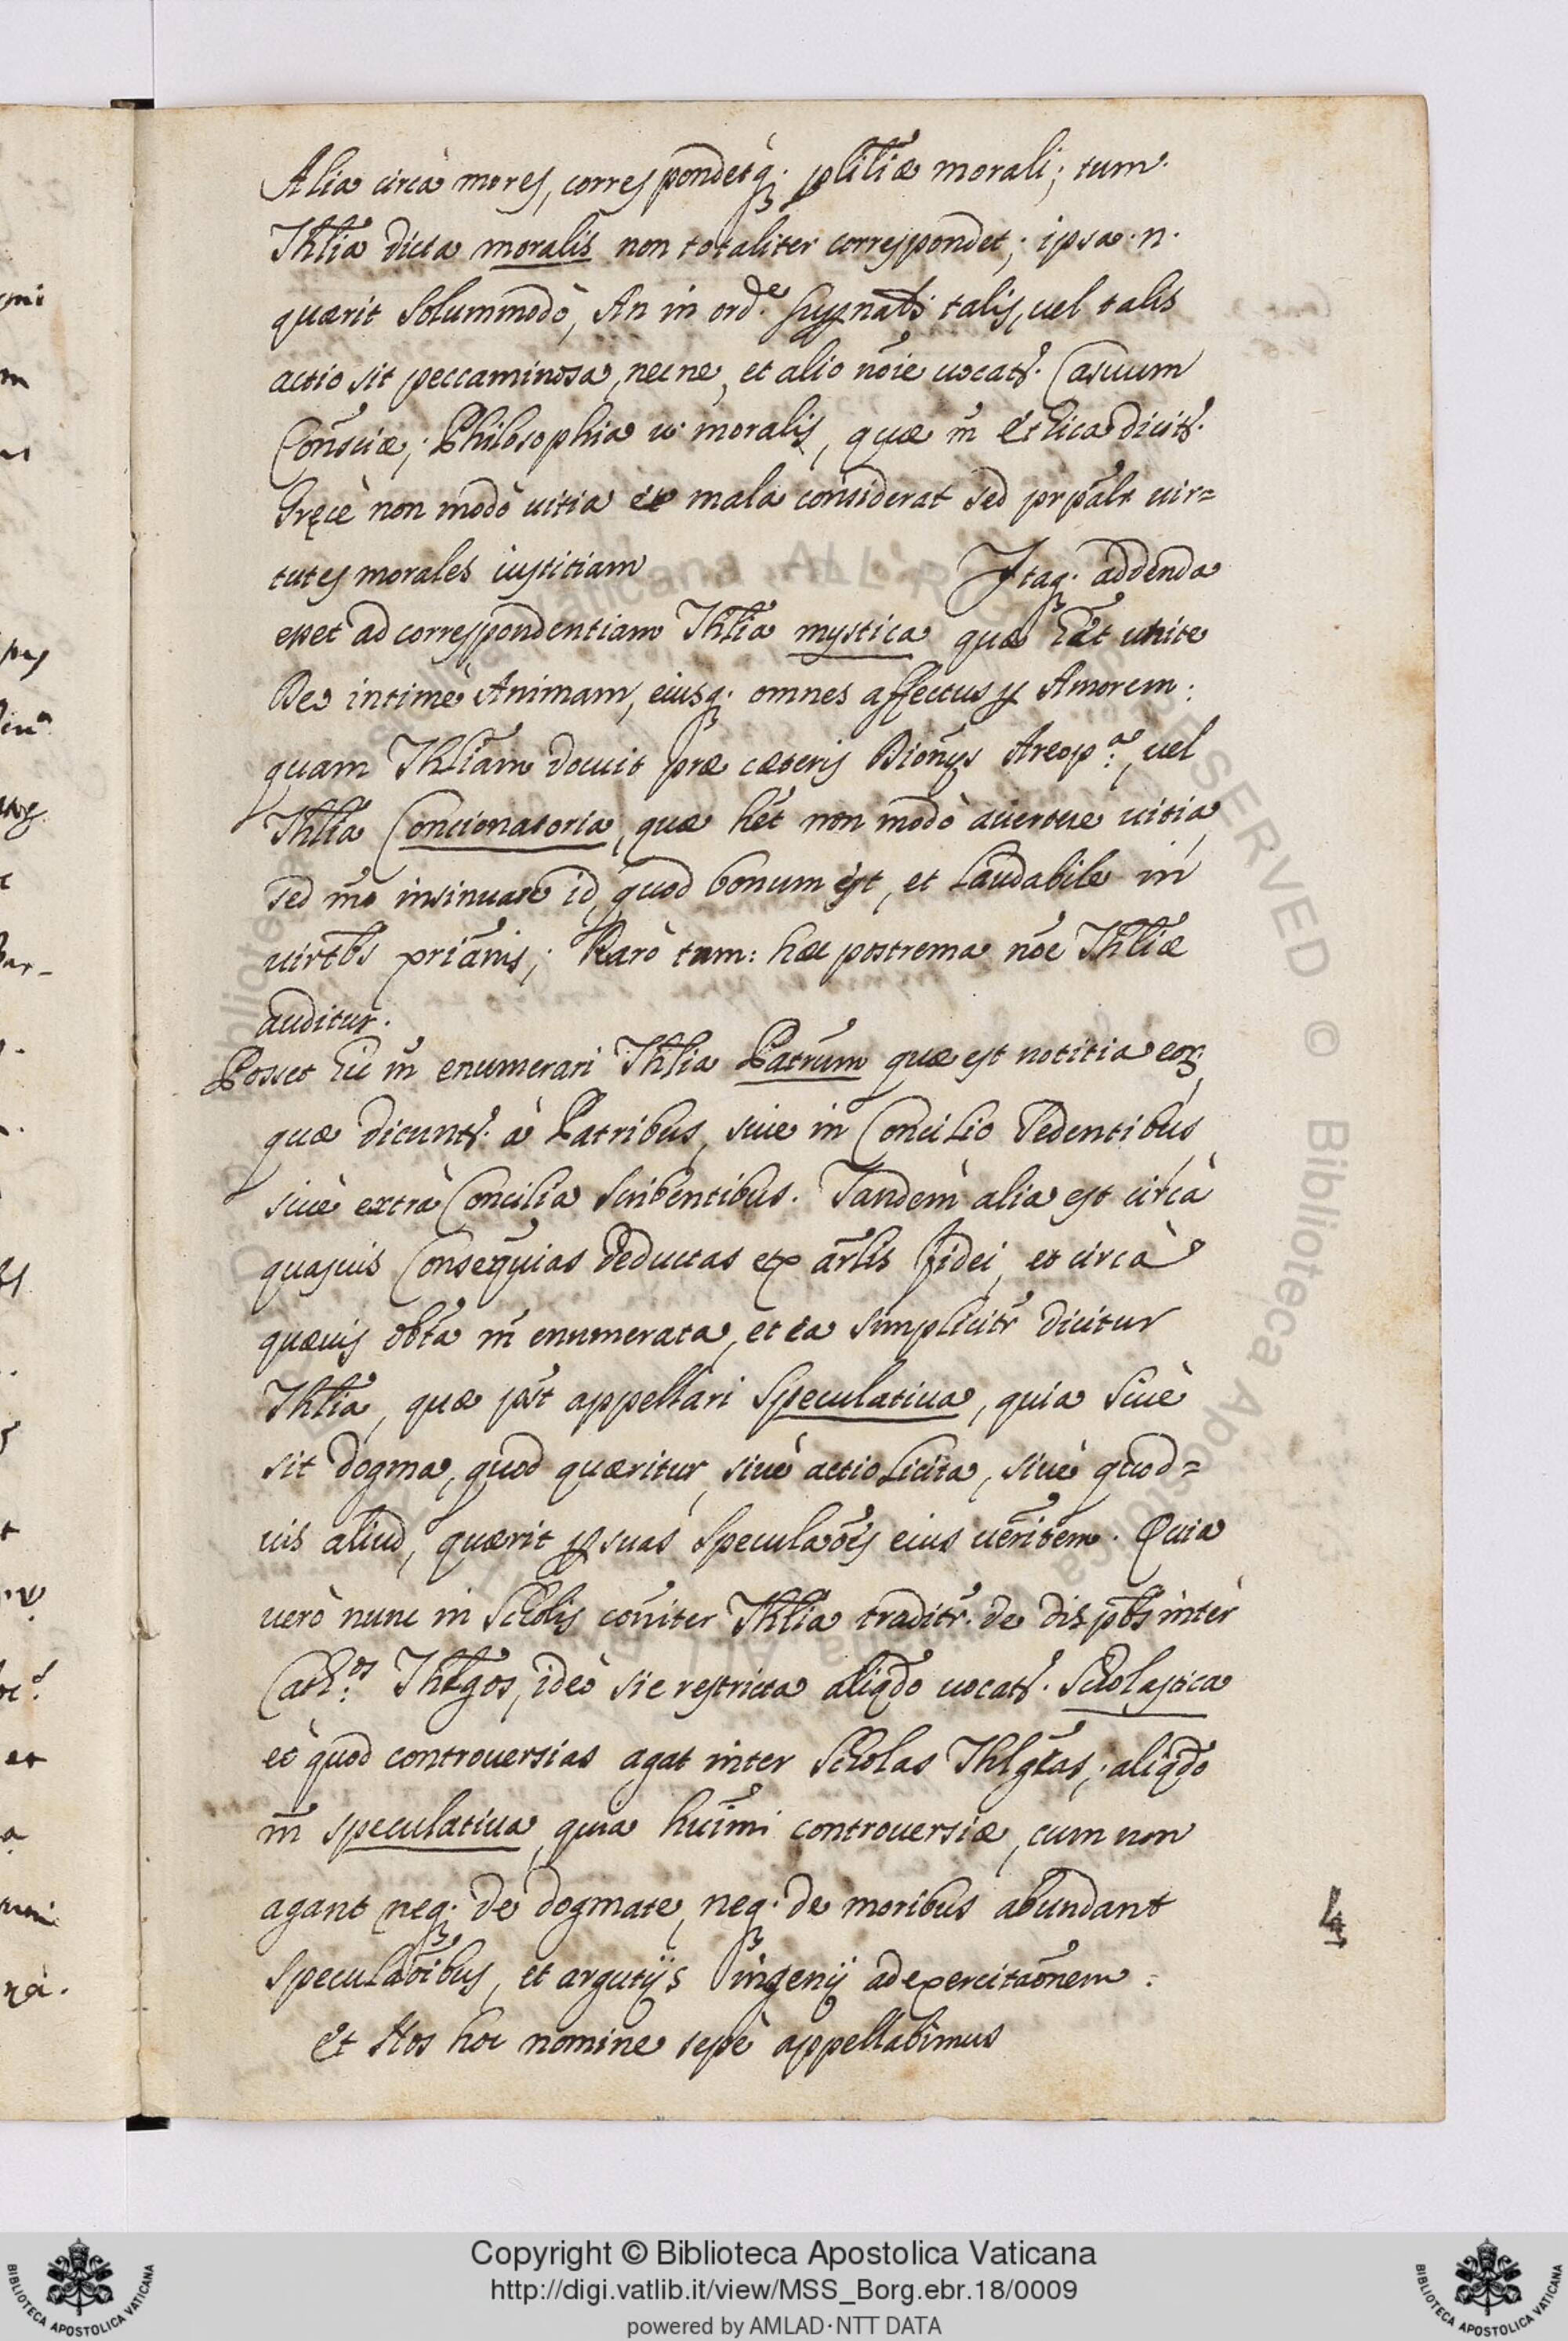 Alia circà mores, correspondetq́; pħliæ morali; tum
Thlia dicta moralis non totaliter correspondet; ipsa n.
quærit solummodò, An in ord.e suprnāli talis, uel talis
actio sit peccaminosa, nec ne, et alio nōīe uocatr. Casuum
Consciæ; Philosophia u. moralis, quæ m̄ Ethica dicitr.
Gręcè non modò uitia et mala considerat sed prpālr uir=
tutes morales iustitiam Itaq; addenda
esset ad correspondentiam Thlia mystica quæ hȇt unire
Deo intimè Animam, eiusq; omnes affectus ꝑ Amorem:
quam Thliam docuit præ cæteris Dionys Areop.a, uel
Thlia Concionatoria, quæ hét non modò auertere uitia,
sed m̄o insinuare id, quod bonum est, et Laudabile in
uirtbs xpriānis; Rarò tam: hæc postrema nōe Thliæ
auditur.
Posset hic m̄ enumerari Thlia Patrum quæ est notitia eoꝝ,
quæ dicuntr. à Patribus, siue in Concilio Sedentibus,
siuè extrà Concilia scribentibus. Tandem alia est circà
quasuis Conseq̄uias deductas ex ārlis fidei, et circà
quæuis obta m̄ enumerata, et ea simplicitr dicitur
Thlia, quæ pōt appellari Speculatiua, quia Siuè
sit dogma, quod quæritur, siuè actio Licita, siuè quod=
uis aliud, quærit ꝑ suas speculaōes eius ueritem. Quia
uerò nunc in Scholis coñiter Thlia traditr. de dispbs intèr
Cath.os Thlgos, ideò sic restricta aliqdo uocatr. Scholastica
eò quod controuersias agat inter Scholas Thlgcas; aliqdo
m̄ speculatiua, quia huīmi controuersiæ, cum non
agant neq; de dogmate, neq; de moribus abundant
speculaōibus, et argutijs ingenij ad exercitaōnem:
Et Nos hoc nomine sepè appellabimus
4
Copyright © Biblioteca Apostolica Vaticana
http://digi.vatlib.it/view/MSS_Borg.ebr.18/0009
powered by AMLAD·NTT DATA